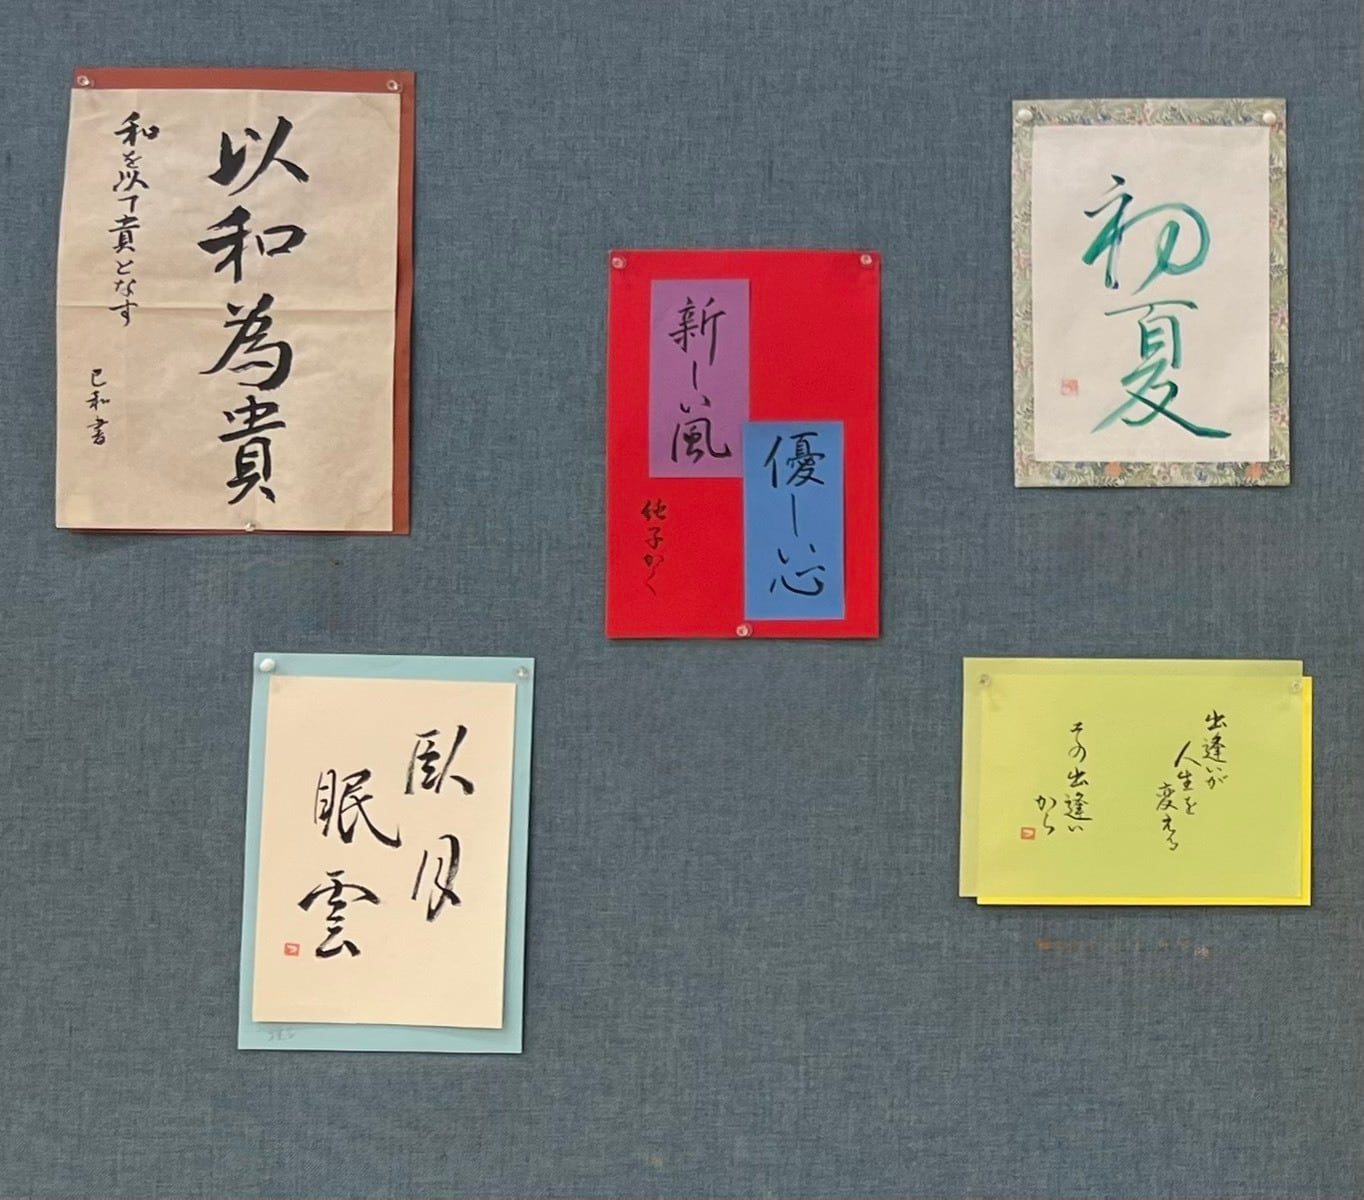 以和為貴
和を以て貴となす
己和書
新しい風
優しい心
純子かく
初夏
臥月
眠雲
出逢いが
人生を
変える
その出逢い
から